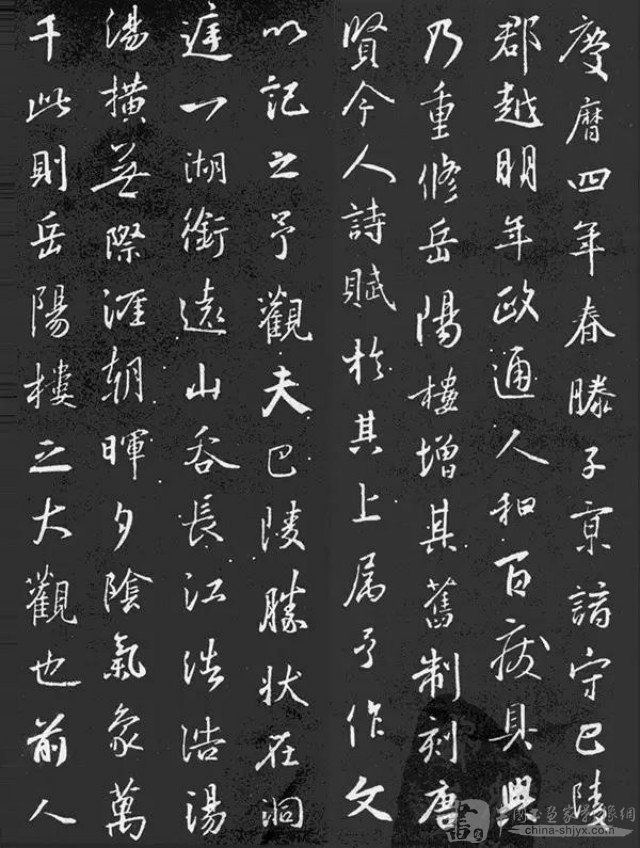 慶曆四年春滕子京謫守巴陵
郡越明年政通人和百廢具興
乃重修岳陽樓增其舊制刻唐
賢今人詩賦於其上属予作文
以記之予觀夫巴陵勝狀在洞
庭一湖銜遠山吞長江浩浩湯
湯橫無際涯朝暉夕陰氣象萬
千此則岳陽樓之大觀也前人
china-shjyx.com